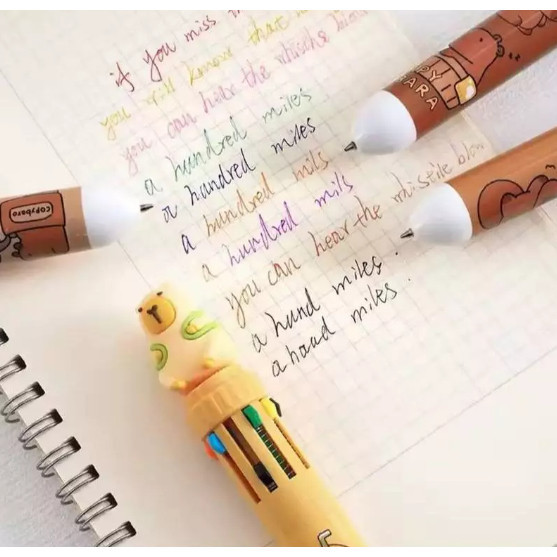 if you miss
you will know that
you can hear the whistle blow
a hundred miles
a hundred miles
a hundred mils
a hundred mils
you can hear the whistile blow
a hund miles.
a haad miles.
CAPYBARA
copybara